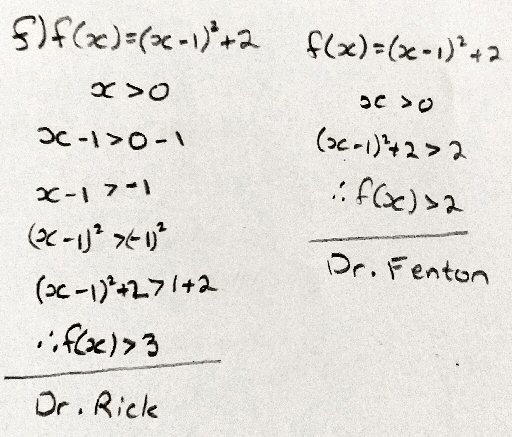 f) f(x)=(x-1)²+2
x>0
x-1>0-1
x-1>-1
(x-1)²>(-1)²
(x-1)²+2>1+2
∴f(x)>3
Dr. Rick
f(x)=(x-1)²+2
x>0
(x-1)²+2>2
∴f(x)>2
Dr. Fenton